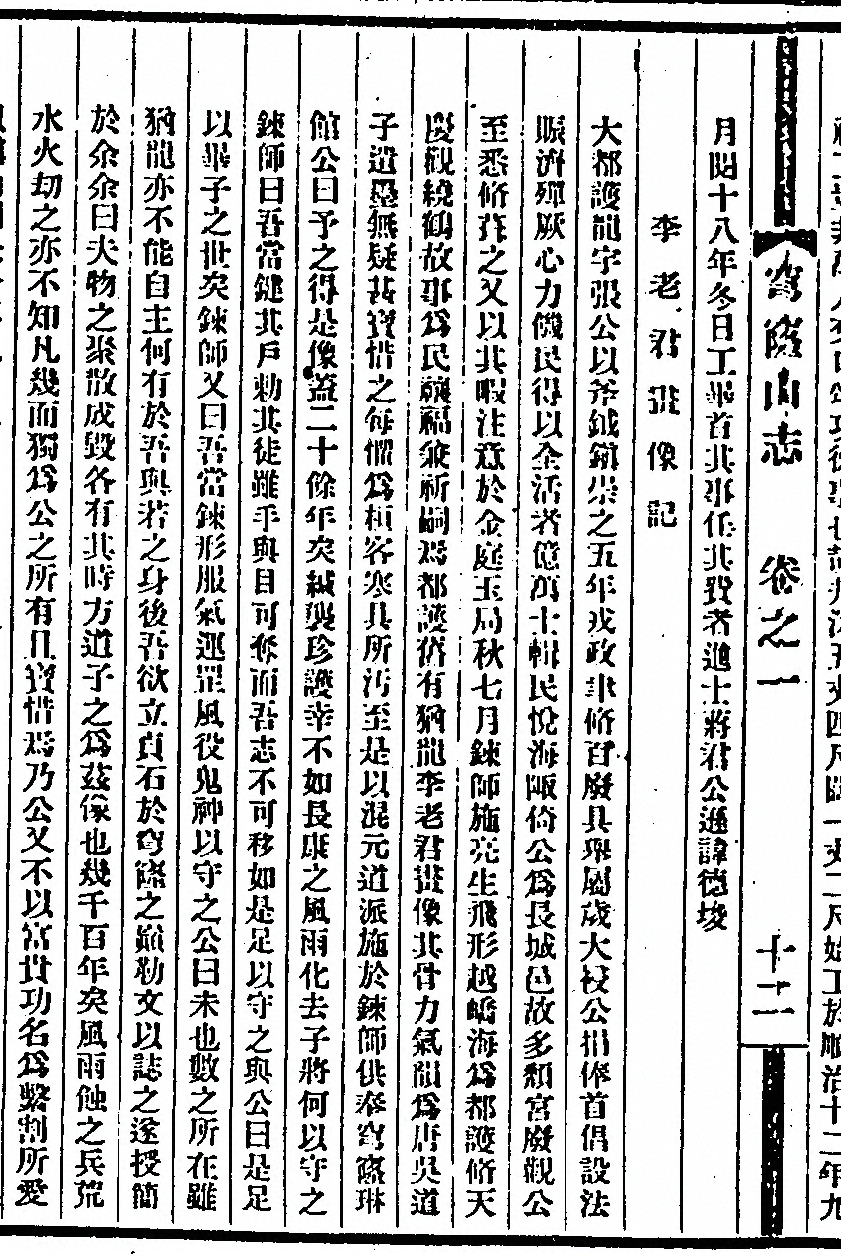 始工於順治十二年九
穹窿山志 卷之一 十二
月閱十八年冬日工畢首其事任其教者進士蔣君公遜諱德埈
李老君畫像記
大都護龍宇張公以斧鉞鎮崇之五年戎政聿脩百廢具舉屬歲大祲公捐俸首倡設法
賑濟殫厥心力饑民得以全活者億萬士輯民悅海陬倚公為長城邑故多頹宮廢觀公
至悉脩葺之又以其暇注意於金庭玉局秋七月鍊師施亮生飛形越嶠海為都護脩天
慶觀繞鶴故事為民禳福兼祈嗣焉都護舊有猶龍李老君畫像其骨力氣韻為唐吳道
子遺墨無疑甚寶惜之每懼為桓客寒具所汚至是以混元道派施於鍊師供奉穹窿琳
館公曰予之得是像蓋二十餘年矣緘襲珍護幸不如長康之風雨化去子將何以守之
鍊師曰吾當鍵其戶勅其徒雖手與目可奪而吾志不可移如是足以守之與公曰是足
以畢子之世矣鍊師又曰吾當鍊形服氣運罡風役鬼神以守之公曰未也數之所在雖
猶龍亦不能自主何有於吾與若之身後吾欲立貞石於穹窿之巔勒文以誌之遂授簡
於余余曰夫物之聚散成毀各有其時方道子之為茲像也幾千百年矣風雨蝕之兵荒
水火刼之亦不知凡幾而獨為公之所有且寶惜焉乃公又不以富貴功名為繫割所愛